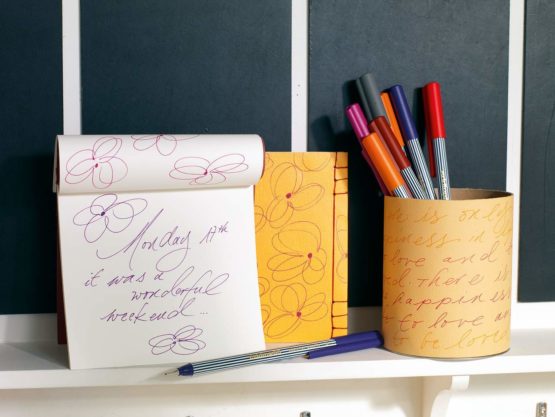 Monday 17th
it was a
wonderful
weekend...
is only
happiness in
love and
There is
happiness
to love and
to be love